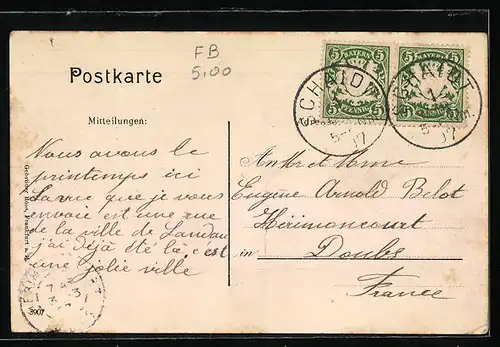 FB
5,00
Postkarte
BAYERN
5 PFENNIG 5
BAYERN
5 PFENNIG 5
SCHAIDT
SCHAIDT
Mitteilungen:
Adresse
Nous avons le
printemps ici
La vue que je vous
envoie est une rue
de la ville de Landau
j'ai déjà été là c'est
une jolie ville
Eugène Arnold Belot
Hérimoncourt
in Doubs
France
3907